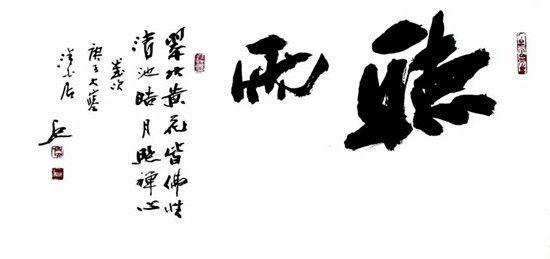 聽雨
翠竹黄花皆佛性
清池皓月照禪心
歲次
庚子大寒